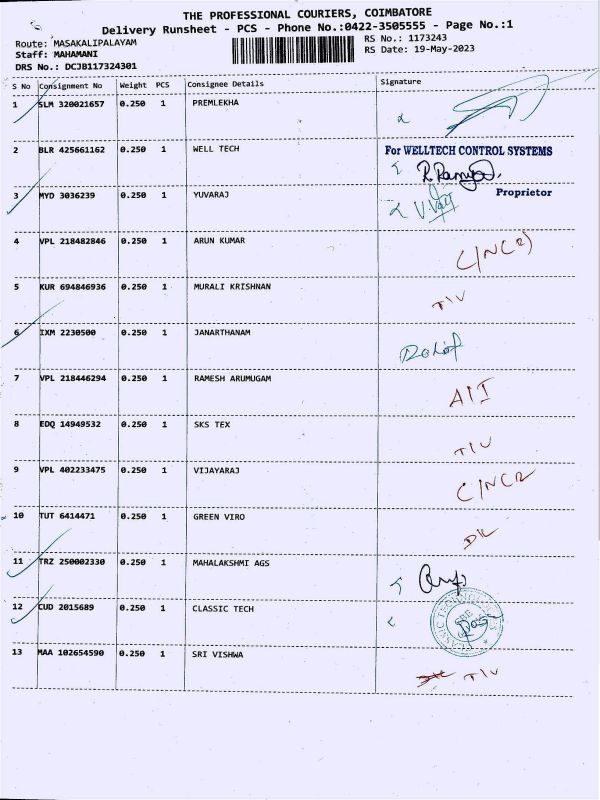 THE PROFESSIONAL COURIERS, COIMBATORE
Delivery Runsheet - PCS - Phone No.:0422-3505555 - Page No.:1
Route: MASAKALIPALAYAM RS No.: 1173243
Staff: MAHAMANI RS Date: 19-May-2023
DRS No.: DCJB117324301
S No Consignment No Weight PCS Consignee Details Signature
1 SLM 320021657 0.250 1 PREMLEKHA
2 BLR 425661162 0.250 1 WELL TECH For WELLTECH CONTROL SYSTEMS
Proprietor
3 MYD 3036239 0.250 1 YUVARAJ
4 VPL 218482846 0.250 1 ARUN KUMAR C/NC2)
5 KUR 694846936 0.250 1 MURALI KRISHNAN TIV
6 IXM 2230500 0.250 1 JANARTHANAM
7 VPL 218446294 0.250 1 RAMESH ARUMUGAM AII
8 EDQ 14949532 0.250 1 SKS TEX TIV
9 VPL 402233475 0.250 1 VIJAYARAJ C/NCR
10 TUT 6414471 0.250 1 GREEN VIRO DL
11 TRZ 250002330 0.250 1 MAHALAKSHMI AGS
12 CUD 2015689 0.250 1 CLASSIC TECH
13 MAA 102654590 0.250 1 SRI VISHWA TIV